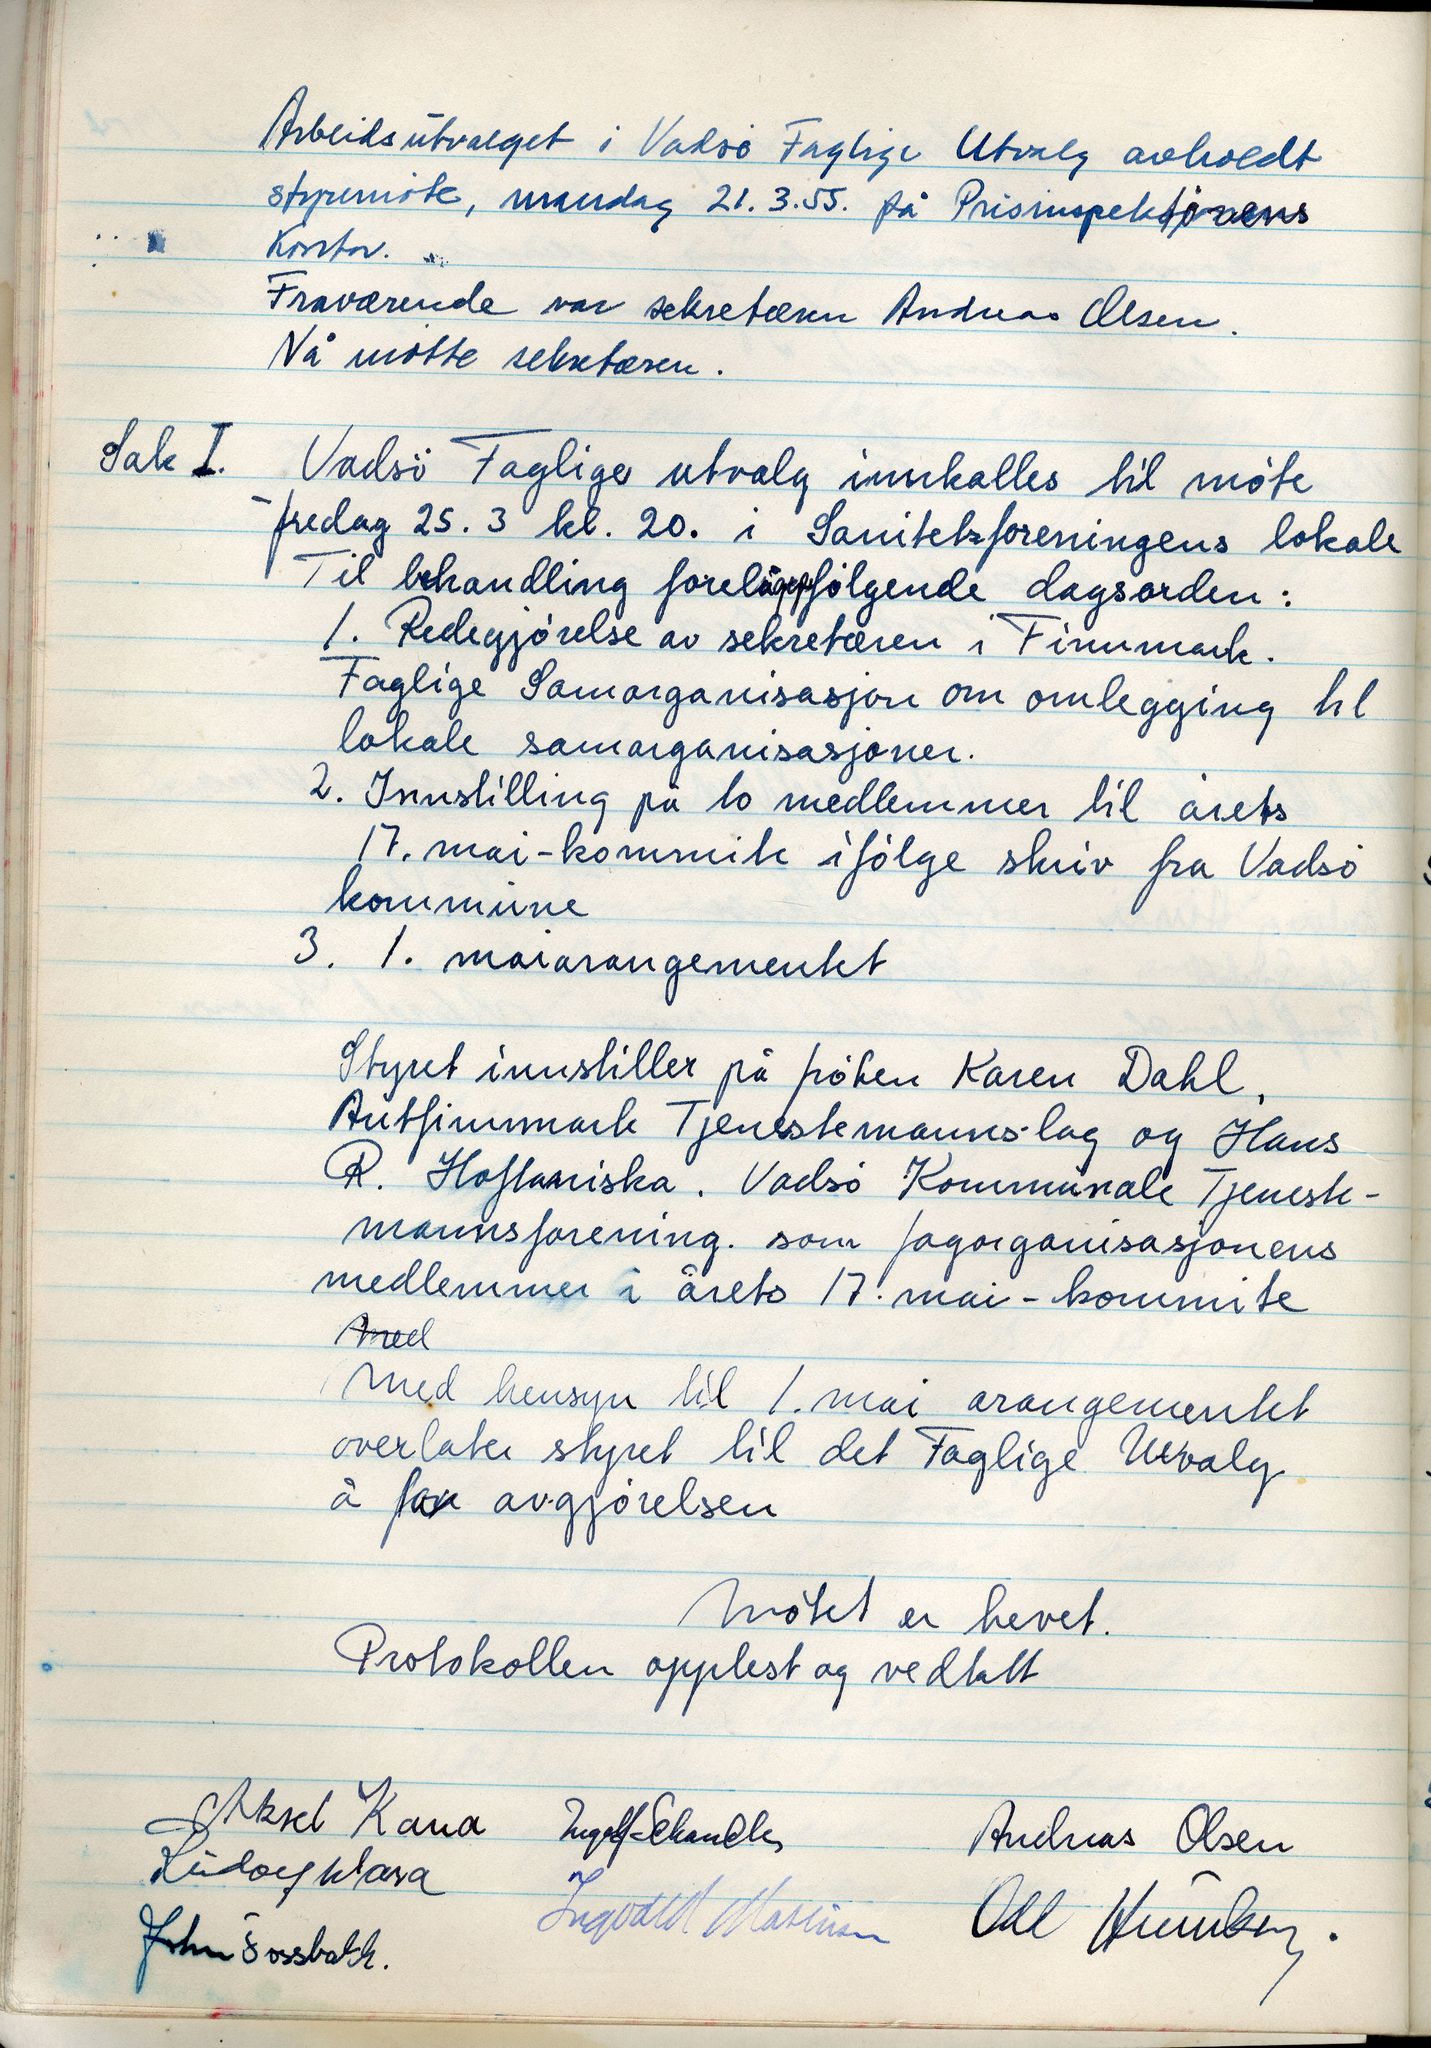 Arbeidsutvalget i Vadsö Faglige Utvalg avholdt
styremöte, mandag 21.3.55. på Prisinspektörens
Kontor.
Fraværende var sekretæren Andreas Olsen.
Nå mötte sekretæren.
Sak I. Vadsö Faglige utvalg innkalles til möte
fredag 25.3 kl. 20. i Sanitetsforeningens lokale
Til behandling foreligger fölgende dagsorden:
1. Redegjörelse av sekretæren i Finnmark.
Faglige Samorganisasjon om omlegging til
lokale samorganisasjoner.
2. Innstilling på to medlemmer til årets
17. mai-kommite ifölge skriv fra Vadsö
kommune
3. 1. maiarangementet
Styret innstiller på fröken Karen Dahl,
Autfinnmark Tjenestemannslag og Hans
R. Hoftaniska. Vadsö Kommunale Tjeneste-
mannsforening. som fagorganisasjonens
medlemmer i årets 17. mai-kommite
Med
Med hensyn til 1. mai arangementet
overlater styret til det Faglige Utvalg
å avgjörelsen
Mötet er hevet.
Protokollen opplest og vedtatt
Aksel Kana Ingolf Andreas Olsen
Ludvig Ingvald Mathisen Odd
John Fossbakk.